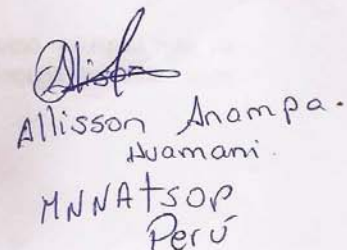 Allisson Anampa.
Huamani.
MNNATSOP
Perú